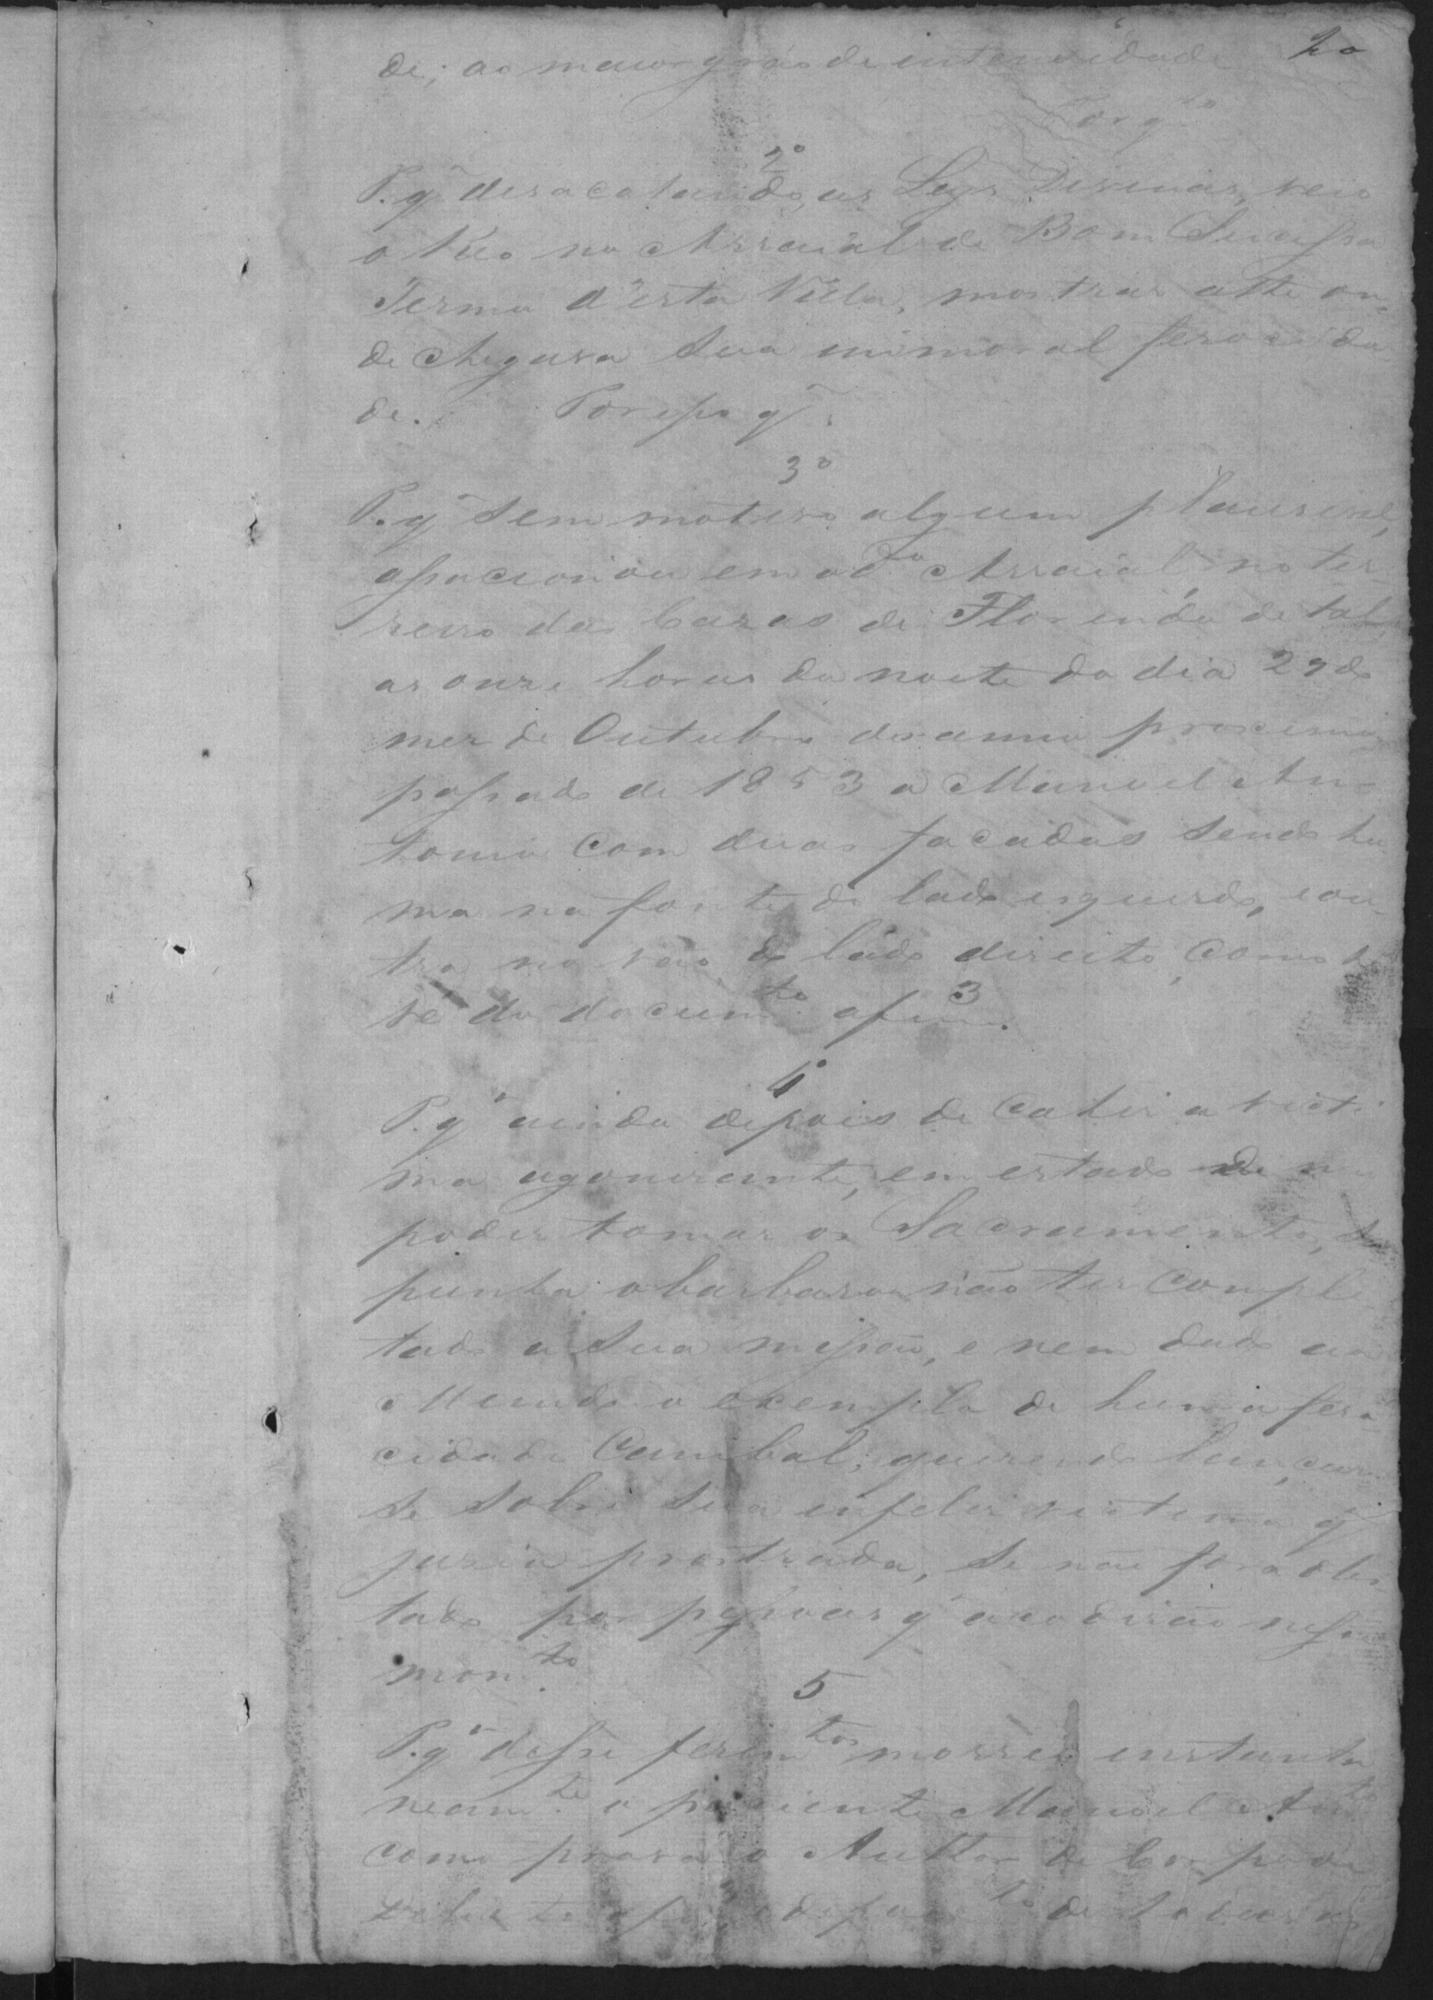 de, ao maior gráo de intensidade 20
Porq.
2º
P. q. desacatando as Leys Divinas, veio
o Reo no Arraial de Bom Sucesso
Termo d'esta Villa, mostrar athe on-
de chegara sua immoral ferocida
de. Por isso q.
3º
P. q. sem motivo algum plausivel,
assacionou em o d.º Arraial no ter-
reiro das Cazas de Florinda de tal,
as onze horas da noite do dia 29 do
mez de Outubro do anno proximo
passado de 1853 a Manoel An-
tonio com duas facadas sendo hu
ma na fonte do lado esquerdo, e ou-
tra no vão do lado direito, como se
vê do docum.to afl 3.
4º
P. q. ainda depois de cahir a victi
ma agonizante, em estado de n
poder tomar os Sacramentos, su
punha o barbaro não ter comple
tado a sua missão, e nem dado ao
Mundo o exemplo de huma fero
cidade Canibal, querendo lançar
se sobre sua infeliz victima q.
jazia prostrada, se não fora obs
tado por pessoas q. acodirão nesse
mom.to
5
P. q. desse ferim.tos morreo instanta
neam.te o paciente Manoel Ant.o
como prova o Autto de Corpo de